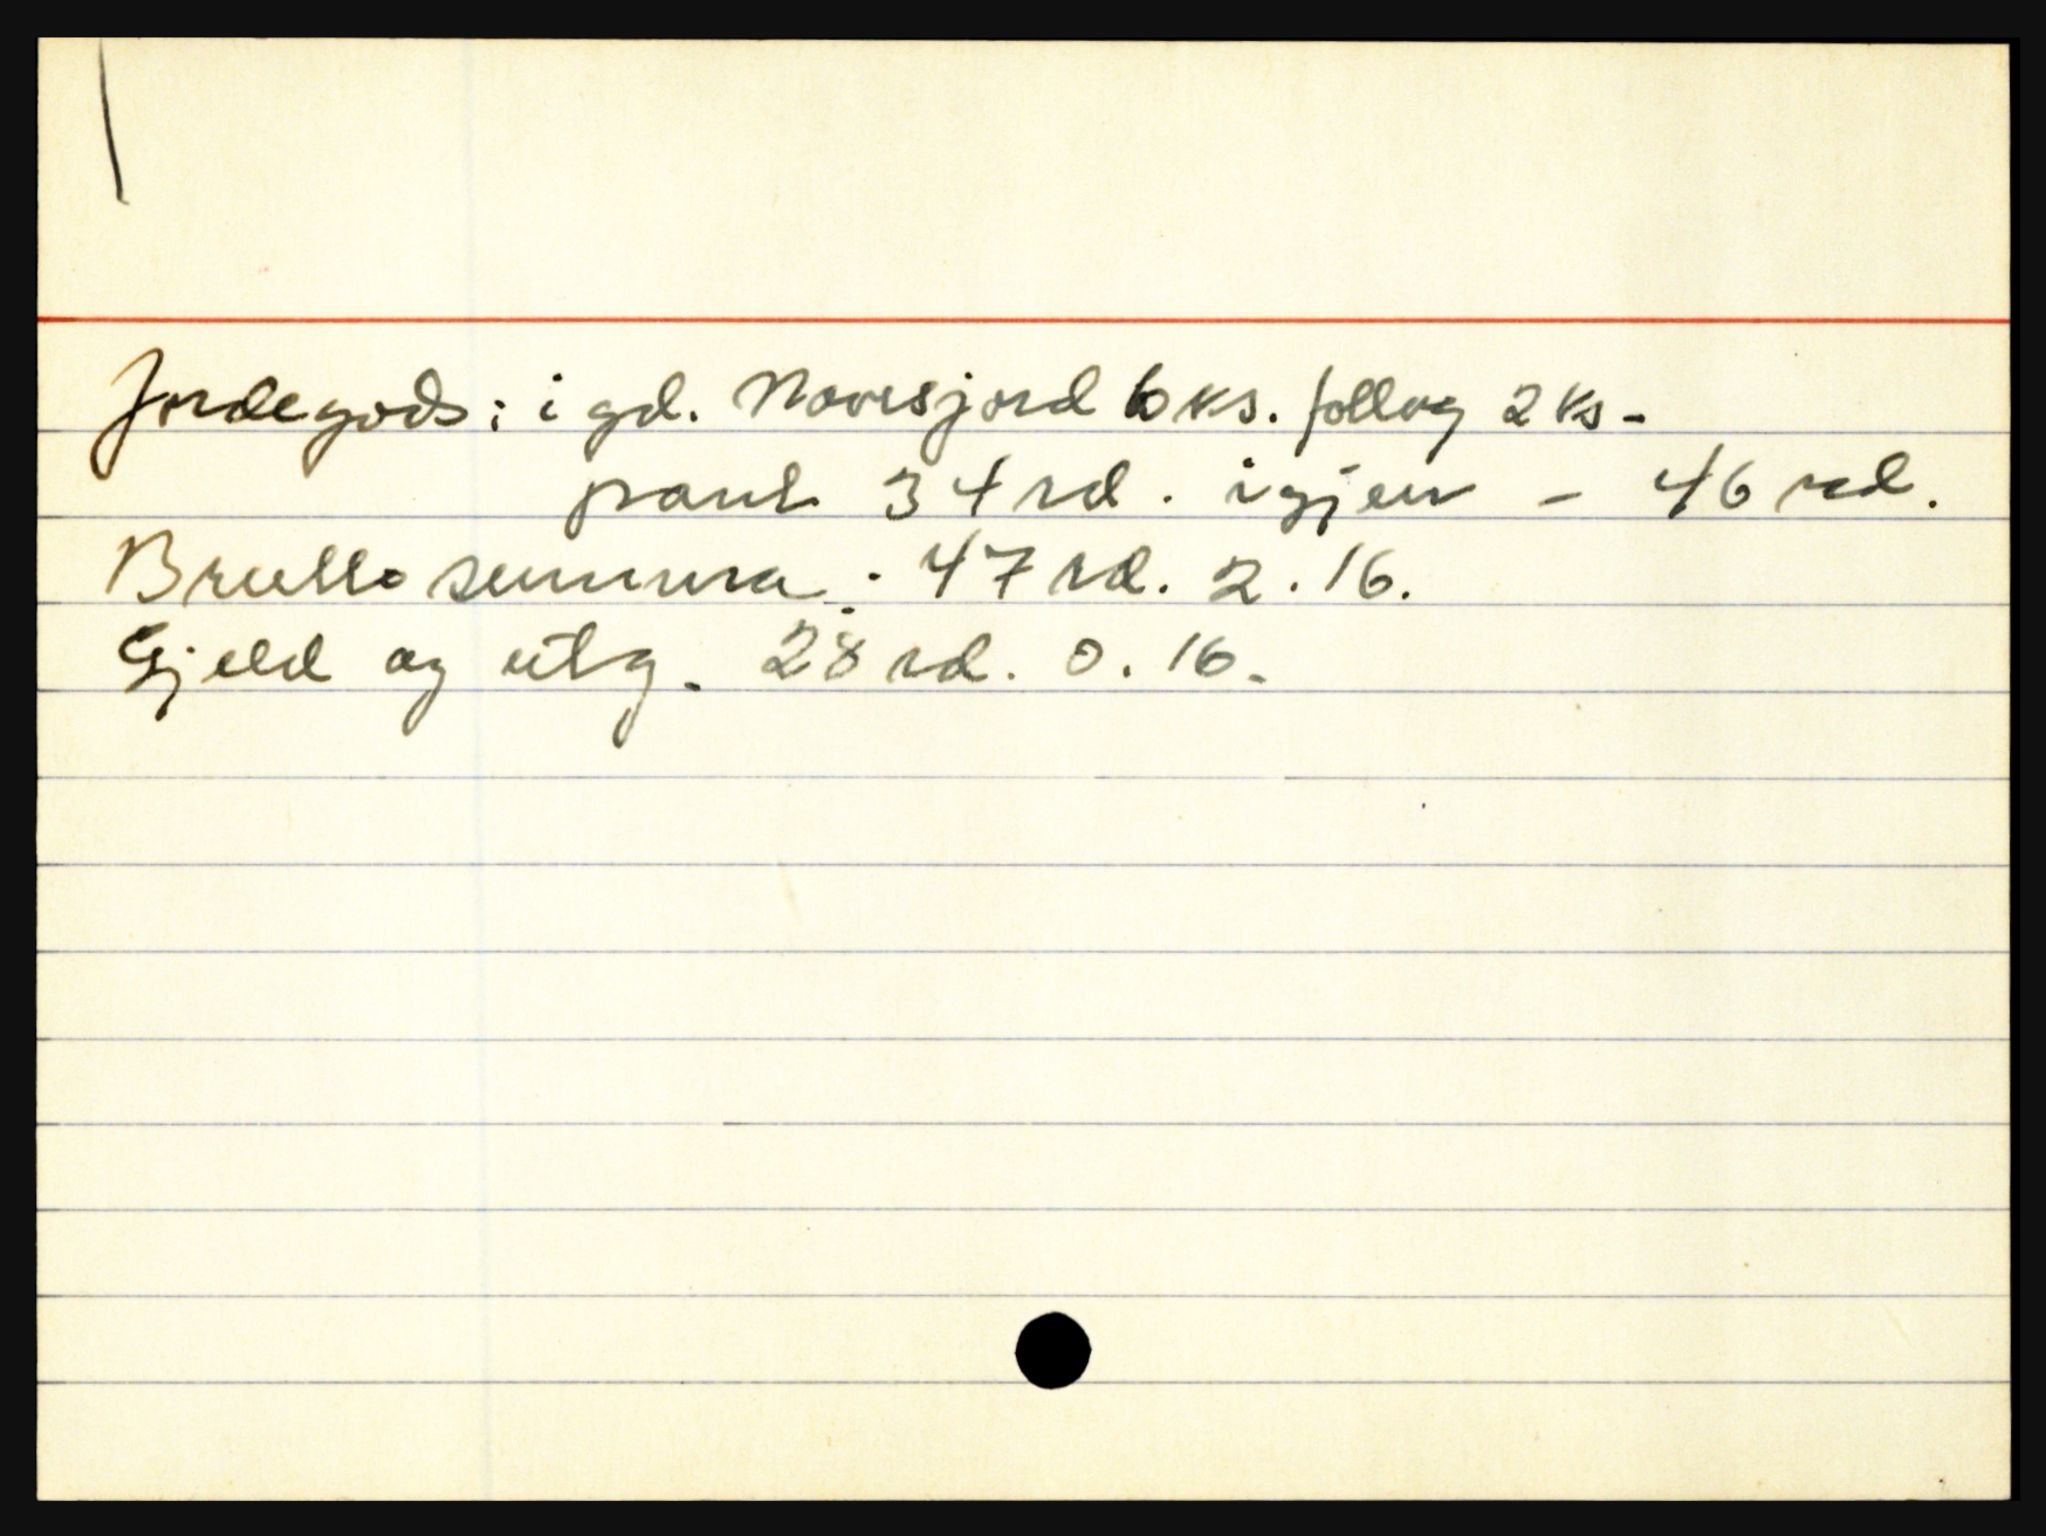 Jordegods: i gd. Novesjord 6 ks. follag 2 ks-
pant 34 rd. igjen - 46 rd.
Brutto summa: 47 rd. 2. 16.
Gjeld og utg. 28 rd. 0. 16.